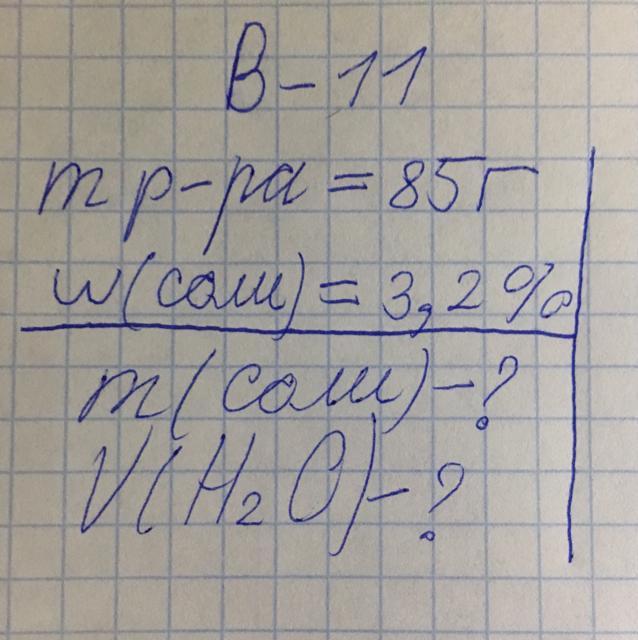 В-11
m р-ра = 85г
w(соли) = 3,2%
m(соли)-?
V(H₂O)-?